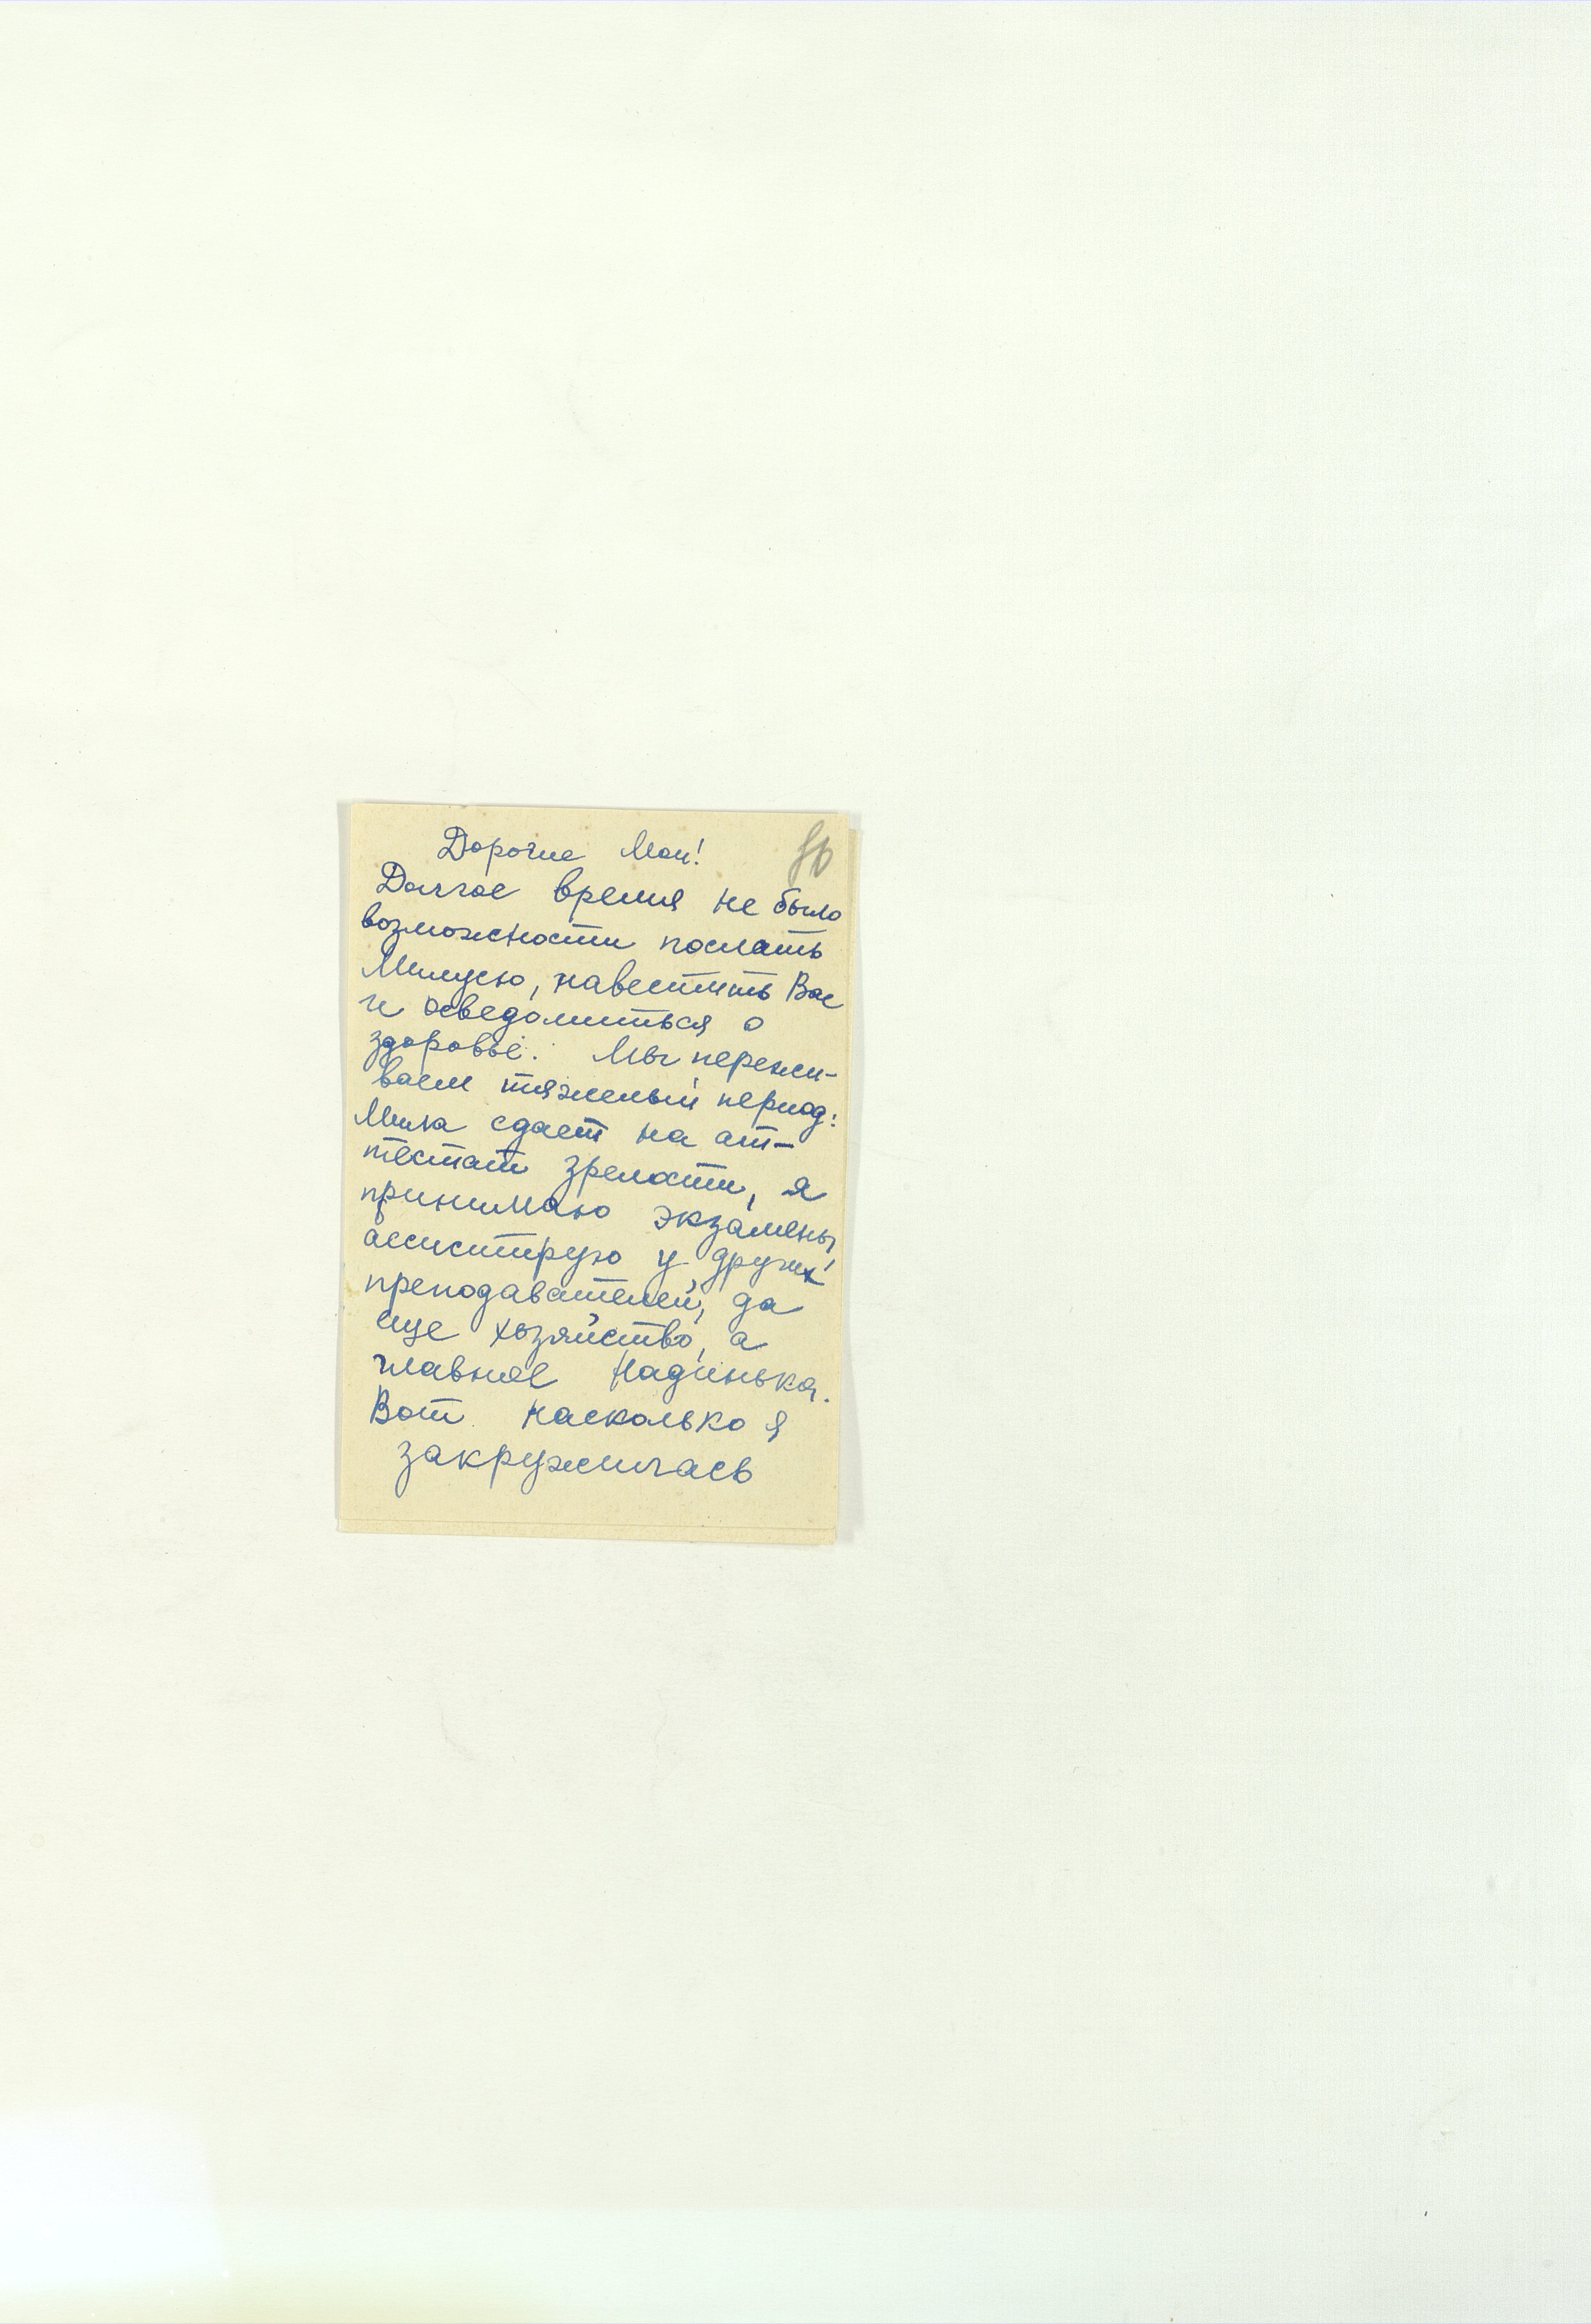 Дорогие Мои!
Долгое время не было
возможности послать
Милусю, навестить Вас
и осведомиться о
здоровье. Мы пережи-
ваем тяжелый период:
Мила сдает на ат-
тестат зрелости, я
принимаю экзамены,
ассистирую у других
преподавателей, да
еще хозяйство, а
главное Надинька.
Вот насколько я
закружилась